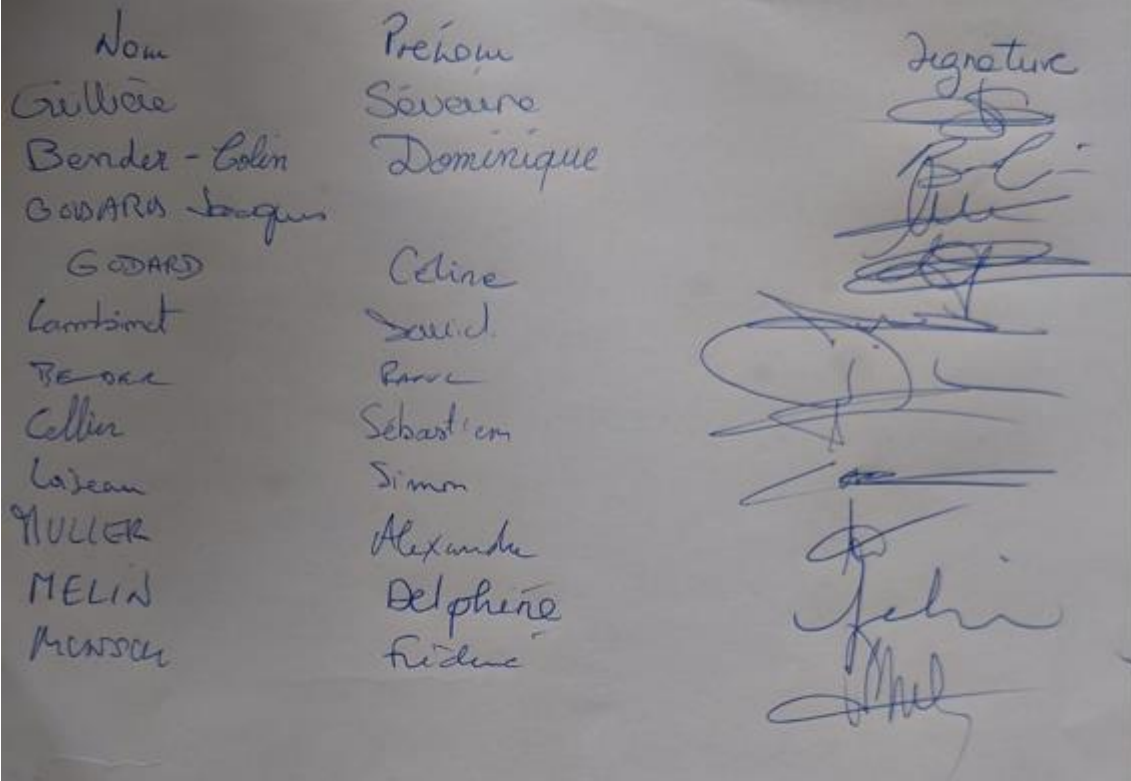 Nom Prénom Signature
Séverine
Bender-Colin Dominique
GODARD Jacques
GODARD Céline
Lambinet David
Cellier Sébastien
Loiseau Simon
MULLER Alexandre
MELIN Delphine
Frédéric